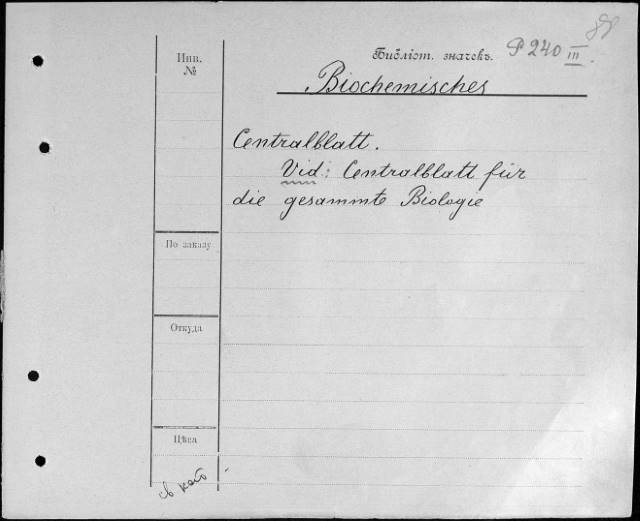 Инв.
№
Библіот. значекъ. P 240 III.
Biochemisches
Centralblatt.
Vid: Centralblatt für
die gesammte Biologie
По заказу
Откуда
Цѣна